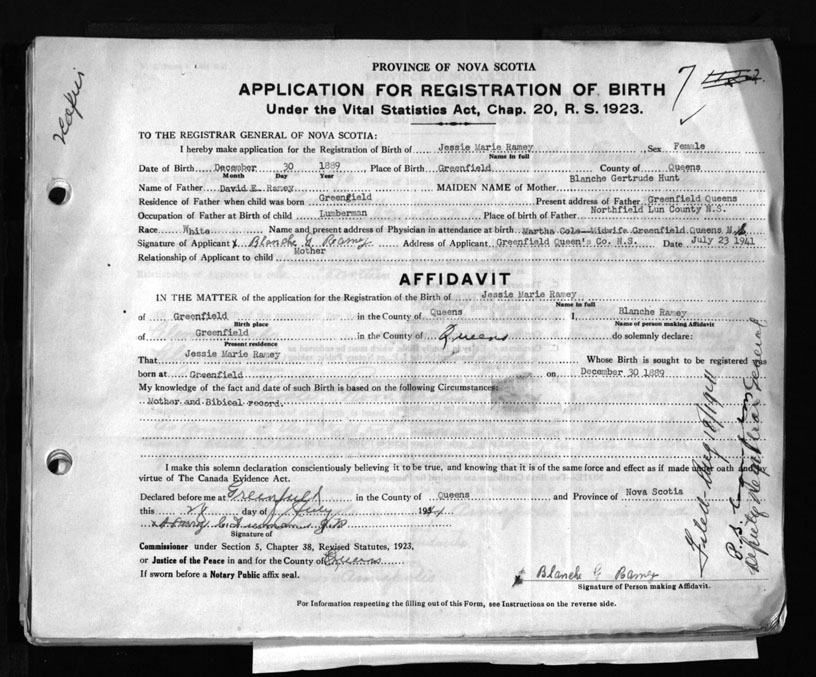 PROVINCE OF NOVA SCOTIA
APPLICATION FOR REGISTRATION OF BIRTH
Under the Vital Statistics Act, Chap. 20, R. S. 1923.
7
TO THE REGISTRAR GENERAL OF NOVA SCOTIA:
I hereby make application for the Registration of Birth of Jessie Marie Ramey, Sex Female
Name in full
Date of Birth December 30 1889 Place of Birth Greenfield County of Queens
Month Day Year
Name of Father David E. Ramey MAIDEN NAME of Mother Blanche Gertrude Hunt
Residence of Father when child was born Greenfield Present address of Father Greenfield Queens
Occupation of Father at Birth of child Lumberman Place of birth of Father Northfield Lun County N.S.
Race White Name and present address of Physician in attendance at birth Martha Cole-Midwife Greenfield Queens N.S.
Signature of Applicant x Blanche G Ramey Address of Applicant Greenfield Queen's Co. N.S. Date July 23 1941
Relationship of Applicant to child Mother
AFFIDAVIT
IN THE MATTER of the application for the Registration of the Birth of Jessie Marie Ramey
Name in full
of Greenfield in the County of Queens I, Blanche Ramey
Birth place Name of person making Affidavit
of Greenfield in the County of Queens do solemnly declare:
Present residence
That Jessie Marie Ramey Whose Birth is sought to be registered was
born at Greenfield on December 30 1889
My knowledge of the fact and date of such Birth is based on the following Circumstances:
Mother and Bibical record.
I make this solemn declaration conscientiously believing it to be true, and knowing that it is of the same force and effect as if made under oath and by
virtue of The Canada Evidence Act.
Declared before me at Greenfield in the County of Queens and Province of Nova Scotia
this day of July 194
Signature of
Commissioner under Section 5, Chapter 38, Revised Statutes, 1923,
or Justice of the Peace in and for the County of Queens
If sworn before a Notary Public affix seal.
Blanche G Ramey
Signature of Person making Affidavit.
For Information respecting the filling out of this Form, see Instructions on the reverse side.
Filed - Aug 1941
Deputy Registrar General